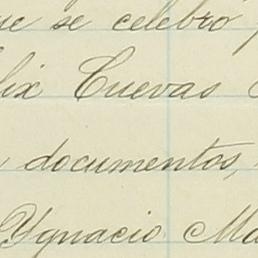 ue se celebró
lix Cuevas
documentos,
Ygnacio Ma